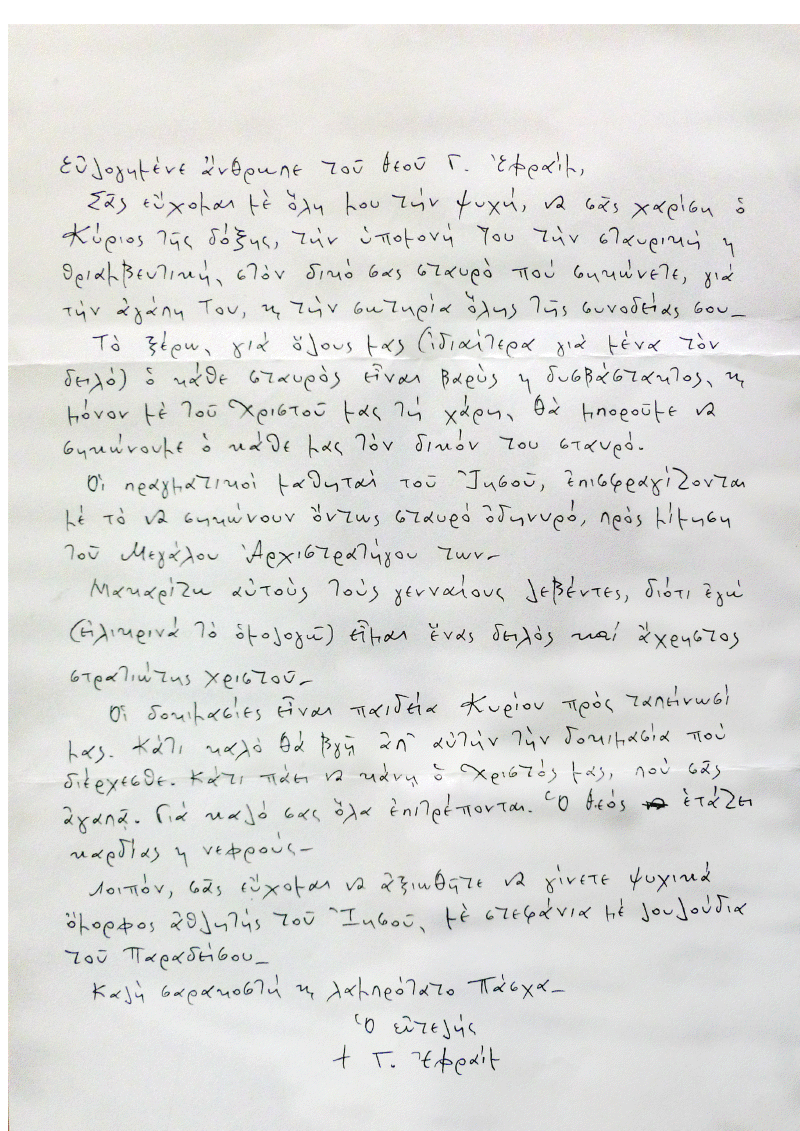 Εὐλογημένε ἄνθρωπε τοῦ Θεοῦ Γ. Ἐφραίμ,
Σᾶς εὔχομαι μὲ ὅλη μου τήν ψυχή, νὰ σᾶς χαρίση ὁ
Κύριος τῆς δόξης, τήν ὑπομονή Του τήν σταυρική ϗ
θριαμβευτική, στόν δικό σας σταυρὸ πού σηκώνετε, γιά
τήν ἀγάπη Του, ϗ τήν σωτηρία ὅλης τῆς συνοδείας σου_
Τὸ ξέρω, γιά ὅλους μας (ἰδιαίτερα γιά μένα τὸν
δειλό) ὁ κάθε σταυρὸς εἶναι βαρὺς ϗ δυσβάστακτος, ϗ
μόνον μὲ τοῦ Χριστοῦ μας τή χάρη, θὰ μποροῦμε νὰ
σηκώνουμε ὁ κάθε μας τὸν δικόν του σταυρό.
Οἱ πραγματικοί μαθηταί τοῦ Ἰησοῦ, ἐπισφραγίζονται
μέ τὸ νὰ σηκώνουν ὄντως σταυρό ὀδηνυρό, πρὸς μίμηση
τοῦ Μεγάλου Ἀρχιστρατήγου των_
Μακαρίζω αὐτοὺς τοὺς γενναίους λεβέντες, διότι ἐγώ
(εἰλικρινά τὸ ὁμολογῶ) εἶμαι ἕνας δειλὸς καί ἄχρηστος
στρατιώτης Χριστοῦ_
Οἱ δοκιμασίες εἶναι παιδεία Κυρίου πρὸς ταπείνωσί
μας. Κάτι καλὸ θά βγῆ ἀπ' αὐτήν τήν δοκιμασία πού
διέρχεσθε. Κάτι πάει νὰ κάνη ὁ Χριστός μας, πού σᾶς
ἀγαπᾷ. Γιά καλό σας ὅλα ἐπιτρέπονται. Ὁ Θεός ἐτάζει
καρδίας ϗ νεφρούς_
Λοιπόν, σᾶς εὔχομαι νὰ ἀξιωθῆτε νὰ γίνετε ψυχικά
ὄμορφος ἀθλητής τοῦ Ἰησοῦ, μὲ στεφάνια μέ λουλούδια
τοῦ Παραδείσου_
Καλή σαρακοστή ϗ λαμπρότατο Πάσχα_
Ὁ εὐτελής
+ Γ. Ἐφραίμ